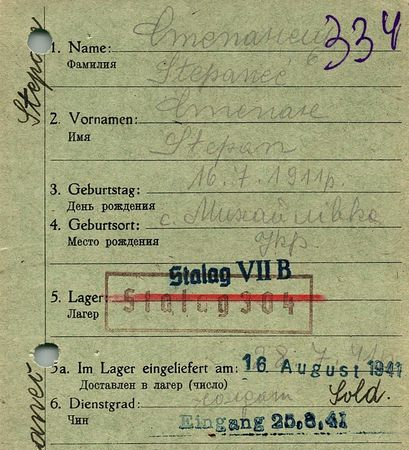 334
1. Name: Степанец
Фамилия Stepaneć
2. Vornamen: Степан
Имя Stepan
3. Geburtstag: 16.7.1911р.
День рождения
4. Geburtsort: с. Михайлівка
Место рождения Укр
Stalag VII B
5. Lager: Stalag 304
Лагер
5a. Im Lager eingeliefert am: 16 August 1941
Доставлен в лагер (число)
6. Dienstgrad: Sold.
Чин Eingang 25.8.41